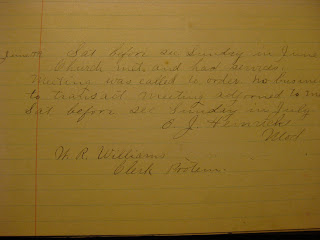 Sat before sec Sunday in June
Church met and had service,
Meeting was called to order no busine
to transact meeting adjourned to me
Sat before sec Sunday in July
E. J. Heinrich
Mod.
W. R. Williams
Clerk Protem.